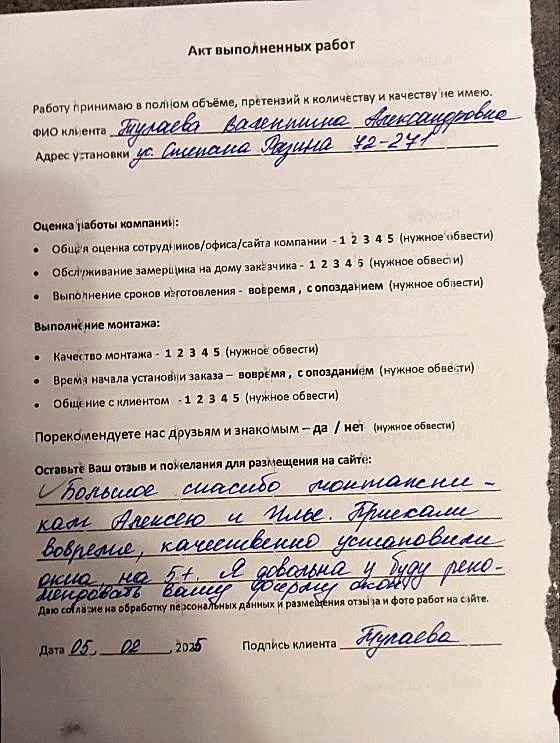 Акт выполненных работ
Работу принимаю в полном объёме, претензий к количеству и качеству не имею.
ФИО клиента Тулаева Валентина Александровна
Адрес установки ул. Степана Разина 72-271
Оценка работы компании:
• Общая оценка сотрудников/офиса/сайта компании - 1 2 3 4 5 (нужное обвести)
• Обслуживание замерщика на дому заказчика - 1 2 3 4 5 (нужное обвести)
• Выполнение сроков изготовления - вовремя , с опозданием (нужное обвести)
Выполнение монтажа:
• Качество монтажа - 1 2 3 4 5 (нужное обвести)
• Время начала установки заказа – вовремя , с опозданием (нужное обвести)
• Общение с клиентом - 1 2 3 4 5 (нужное обвести)
Порекомендуете нас друзьям и знакомым – да / нет (нужное обвести)
Оставьте Ваш отзыв и пожелания для размещения на сайте:
Большое спасибо монтажни-
кам Алексею и Илье. Приехали
вовремя, качественно установили
окна, на 5+. Я довольна и буду реко-
мендовать вашу фирму окон
Даю согласие на обработку персональных данных и размещения отзыва и фото работ на сайте.
Дата 05. 02 , 2025 Подпись клиента Тулаева